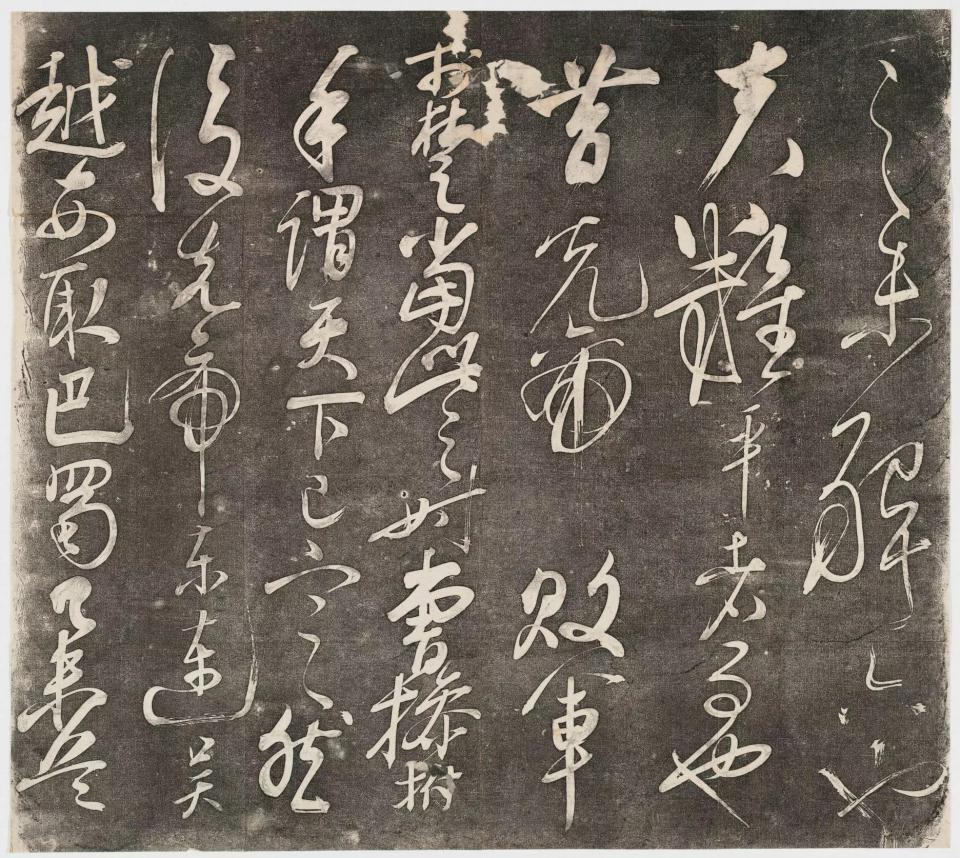 之未解六也
夫難平者事也
昔先帝敗軍
於楚當此之時曹操拊
手謂天下已定然
後先帝東連吳
越西取巴蜀舉兵